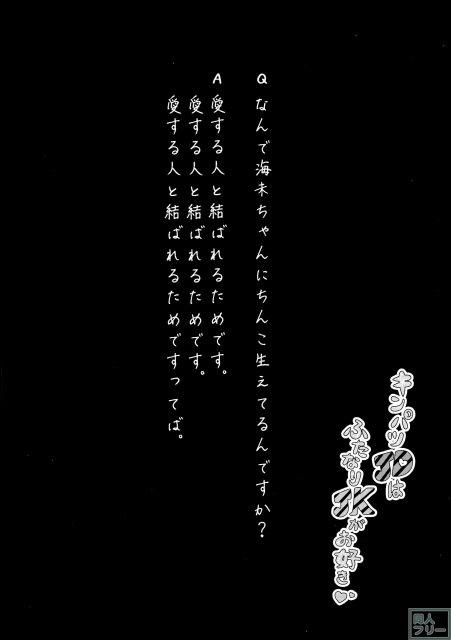 Q なんで海未ちゃんにちんこ生えてるんですか？
A 愛する人と結ばれるためです。
愛する人と結ばれるためです。
愛する人と結ばれるためですってば。
キンパツJDは
ふたなりJKがお好き♡
同人
フリー